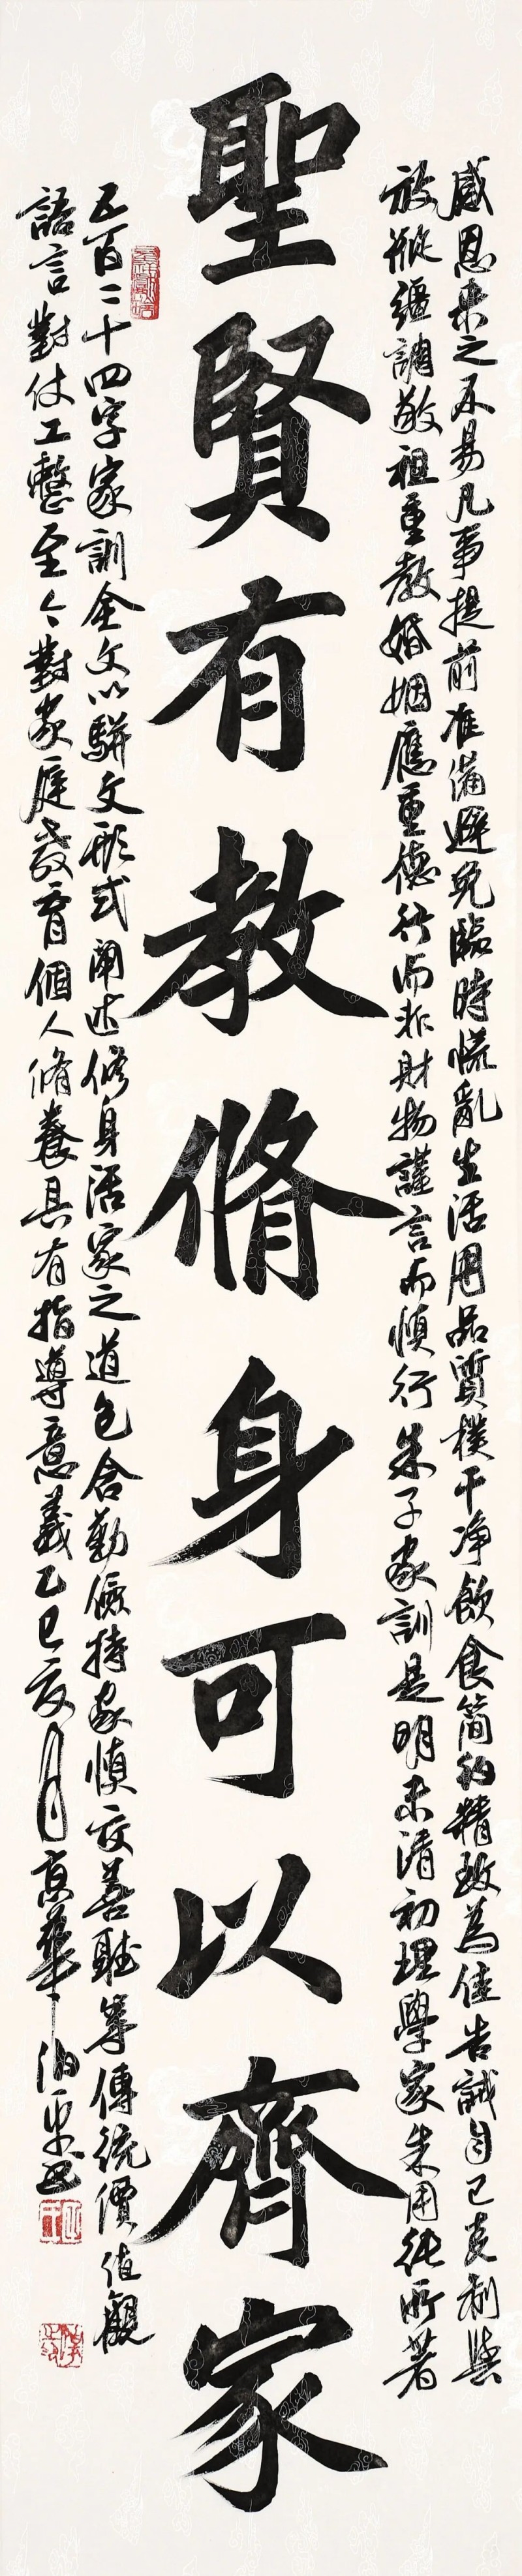 感恩来之不易凡事提前准備避免臨時慌亂生活用品質樸干净飲食簡約精致為佳告誡自己克制與
放縱彊調敬祖重教婚姻應重德行而非財物謹言而慎行朱子家訓是明末清初理學家朱用純所著
聖賢有教脩身可以齊家
五百二十四字家訓全文以駢文形式闡述修身活家之道包含勤儉持家慎交善聽等傳統價值觀
語言對仗工整至今對家庭教育個人脩養具有指導意義乙巳夜月京華